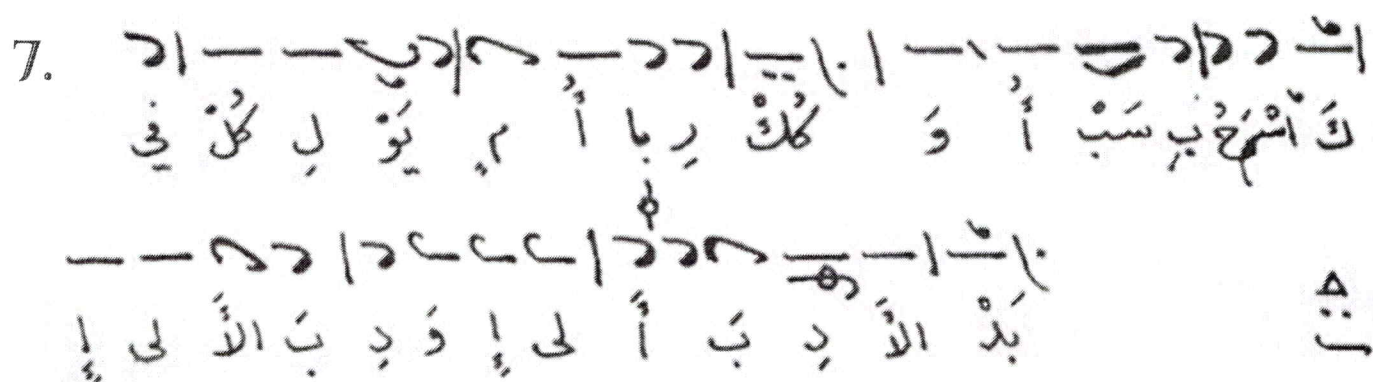 7. فِي كُلْ لِ يَوْ مٍ أُ با رِ كُكْ وَ أُ سَبْ بِ حُ اسْمَ كَ
إِ لى الأَ بَ دِ وَ إِ لى أَ بَ دِ الأَ بَدْ